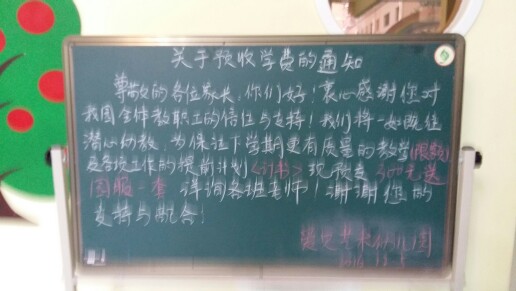 关于预收学费的通知
尊敬的各位家长,你们好!衷心感谢您对
我园全体教职工的信任与支持!我们将一如既往
潜心幼教,为保证下学期更有质量的教学(限额)
及各项工作的提前计划<订书>现预交300元送
园服一套 详询各班老师!谢谢您的
支持与配合!
艺术幼儿园